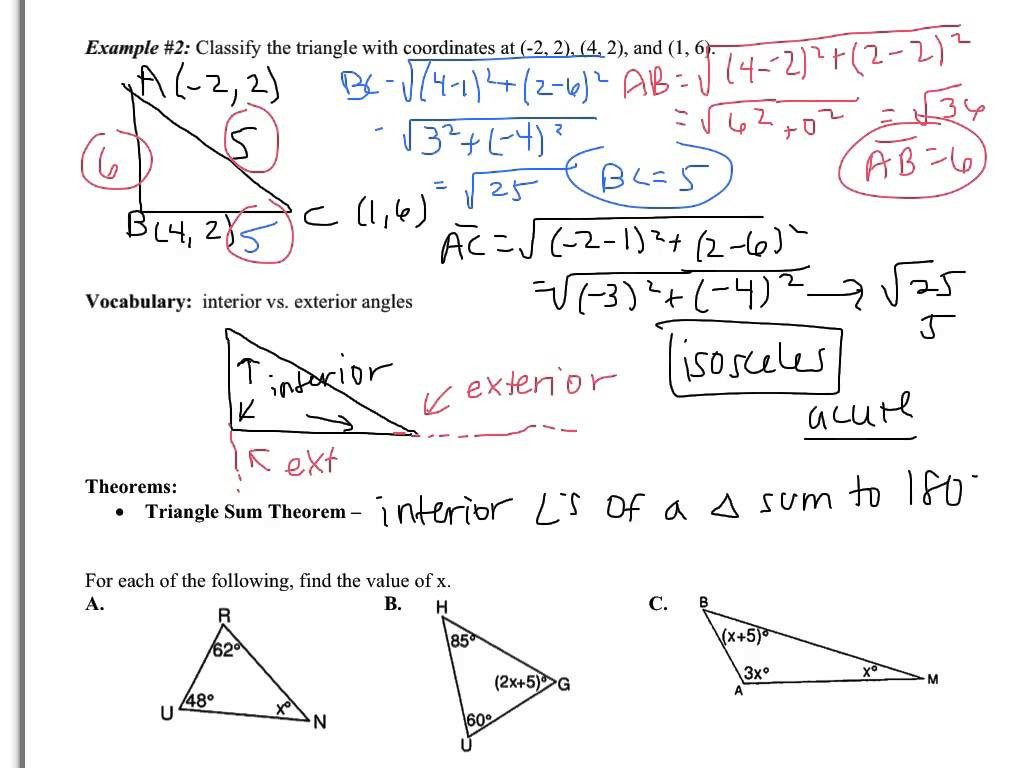 Example #2: Classify the triangle with coordinates at (-2, 2), (4, 2), and (1, 6).
A(-2, 2)
BC = √(4-1)²+(2-6)²
AB = √(4--2)²+(2-2)²
= √3²+(-4)²
= √6²+0² = √36
6
5
= √25
BC=5
AB=6
B(4, 2)
5
C (1,6)
AC = √(-2-1)²+(2-6)²
=√(-3)²+(-4)² → √25
5
Vocabulary: interior vs. exterior angles
isosceles
interior
exterior
acute
ext
Theorems:
• Triangle Sum Theorem – interior ∠'s of a Δ sum to 180°
For each of the following, find the value of x.
A.
B.
C.
R
62°
48°
x°
U
N
H
85°
(2x+5)°
G
60°
U
B
(x+5)°
3x°
x°
A
M